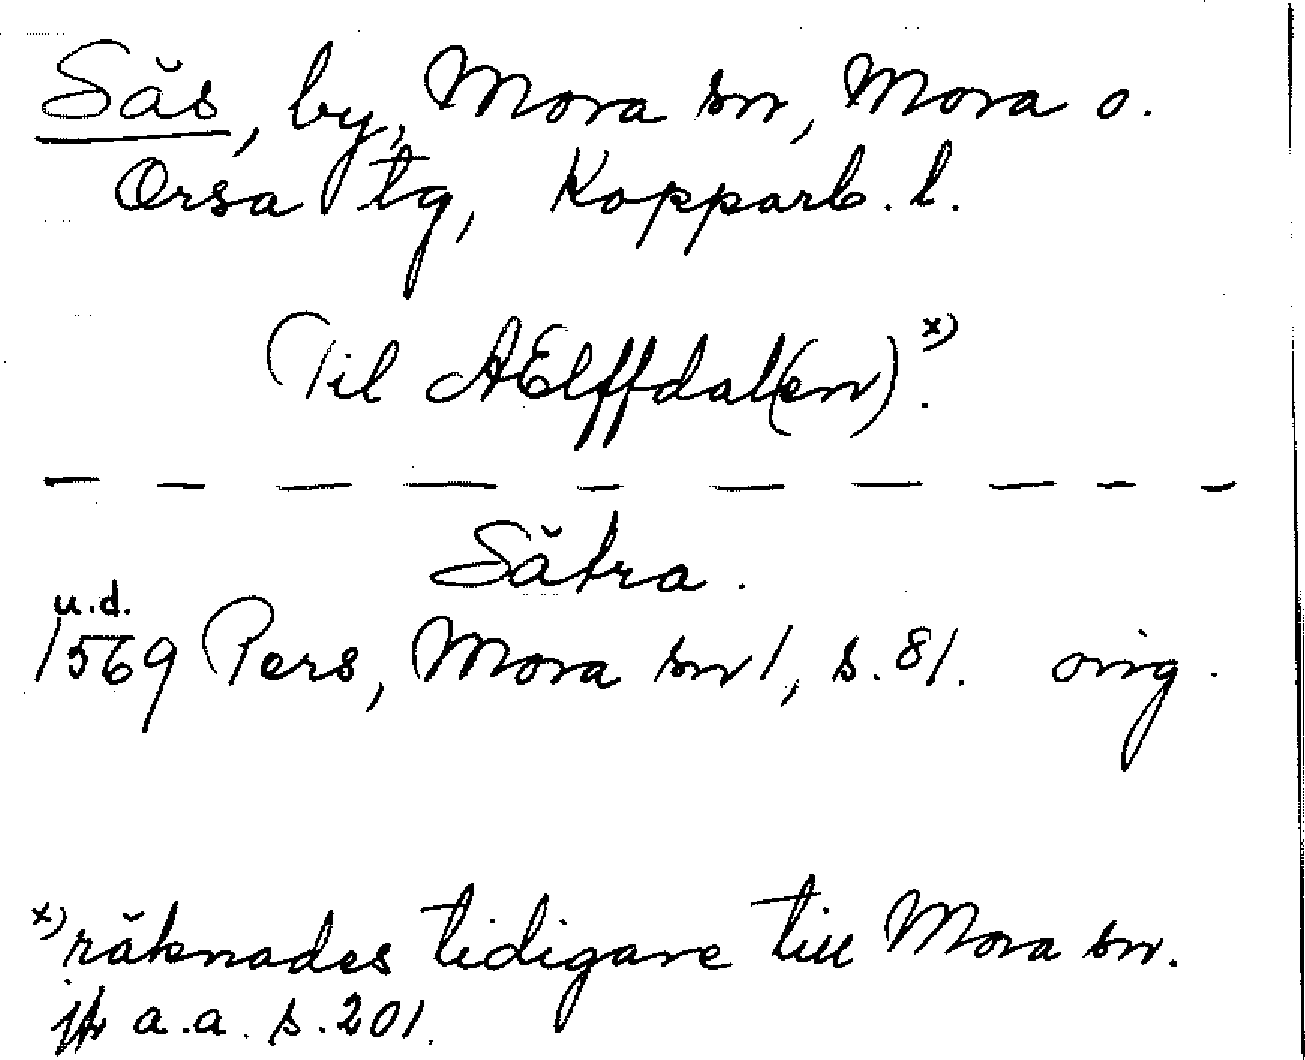 Säs, by, Mora sn, Mora o.
Orsa tg, Kopparb. l.
(Til AElffdal(en).x)
Sätra.
u.d.
1569 Pers, Mora sn 1, s. 81. orig.
x) räknades tidigare till Mora sn.
jfr a.a. s. 201.